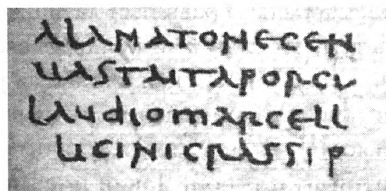 ALANATONECEN
UASTAITAPORCU
LAUDIOMARCELL
UCINICRASSIP